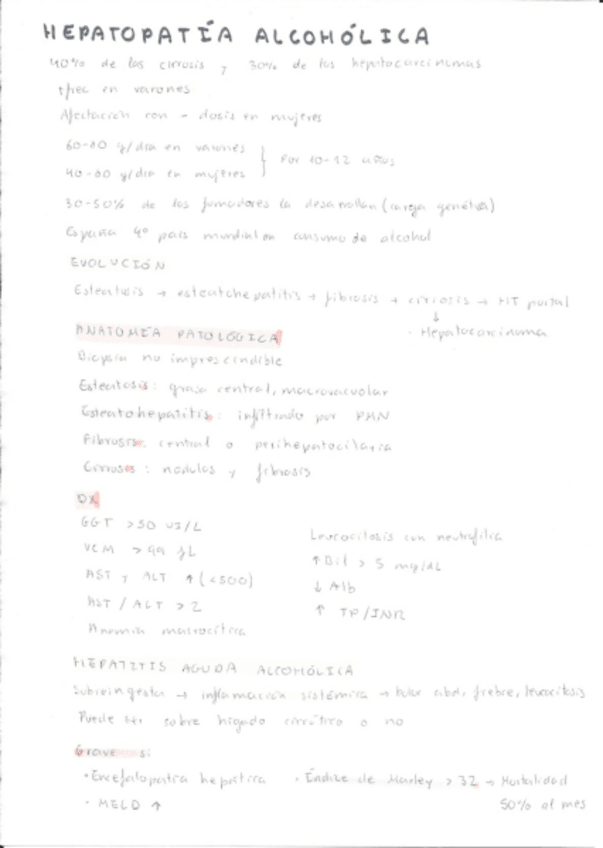 HEPATOPATÍA ALCOHÓLICA
40% de las cirrosis y 30% de los hepatocarcinomas
↑frec en varones
Afectación con - dosis en mujeres
60-80 g/día en varones
40-60 g/día en mujeres
} Por 10-12 años
30-50% de los fumadores la desarrollan (carga genética)
España 4º país mundial en consumo de alcohol
EVOLUCIÓN
Esteatosis → esteatohepatitis → fibrosis → cirrosis → HT portal
↓
· Hepatocarcinoma
ANATOMÍA PATOLÓGICA
Biopsia no imprescindible
Esteatosis: grasa central, macrovacuolar
Esteatohepatitis: infiltrado por PMN
Fibrosis: central o perihepatocilaria
Cirrosis: nódulos y fibrosis
DX
GGT >50 UI/L
VCM >99 fL
AST y ALT ↑ (<500)
AST / ALT >2
Anemia macrocítica
Leucocitosis con neutrofilia
↑ Bil > 5 mg/dL
↓ Alb
↑ TP/INR
HEPATITIS AGUDA ALCOHÓLICA
Sobreingesta → inflamación sistémica → dolor abd, fiebre, leucocitosis
Puede ser sobre hígado cirrótico o no
Grave si:
· Encefalopatía hepática
· MELD ↑
· Índice de Marley > 32 → Mortalidad
50% al mes